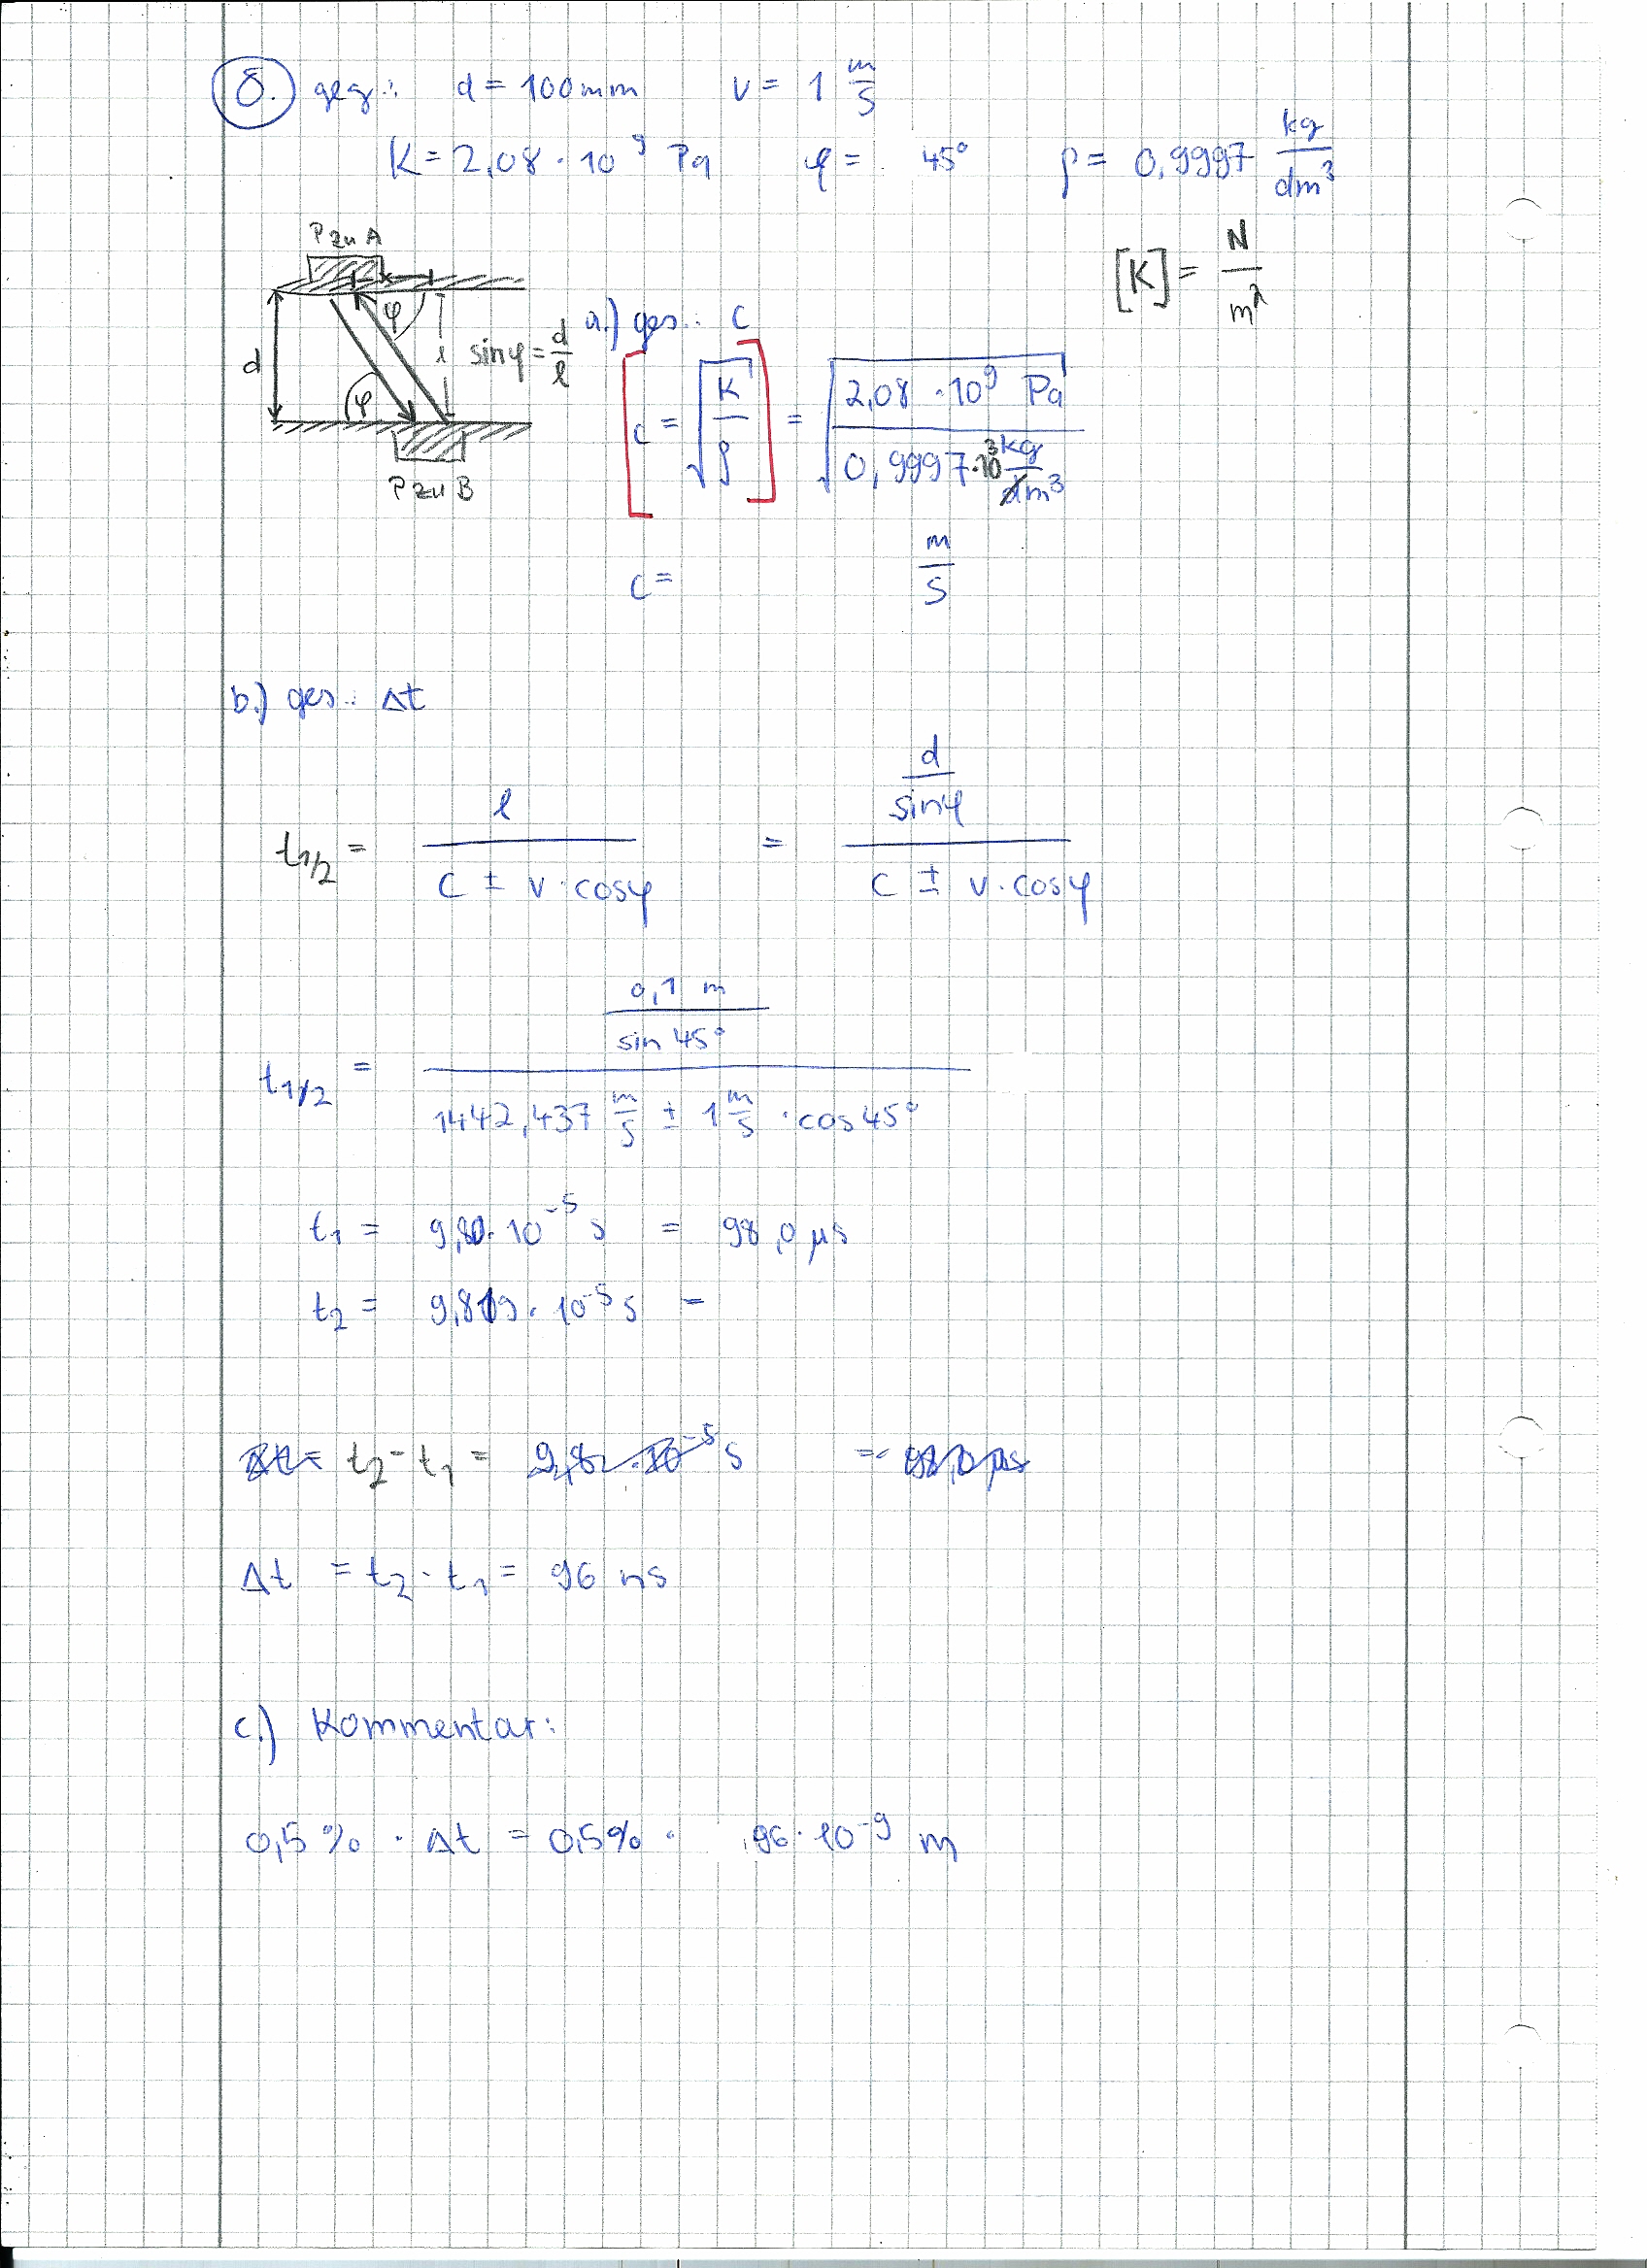 8. geg.: d = 100mm v = 1 m/s
K = 2,08 · 10^9 Pa φ = 45° ρ = 0,9997 kg/dm³
Pzu A
[K] = N/m²
a.) ges.: c
d φ φ l sinφ = d/l
c = √(K/ρ) = √(2,08 · 10^9 Pa / 0,9997·10³ kg/dm³)
Pzu B
c = m/s
b.) ges.: Δt
t1/2 = l / (c ± v · cosφ) = (d / sinφ) / (c ± v · cosφ)
t1/2 = (0,1 m / sin 45°) / (1442,437 m/s ± 1 m/s · cos 45°)
t1 = 9,80 · 10^-5 s = 98,0 µs
t2 = 9,809 · 10^-5 s =
t2 - t1 = s =
Δt = t2 - t1 = 96 ns
c.) Kommentar:
0,5 % · Δt = 0,5% · 96 · 10^-9 m